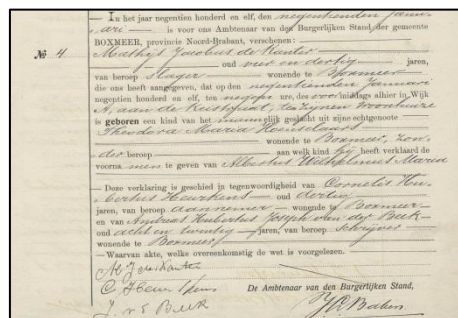 — In het jaar negentien honderd en elf, den negentienden Janu-
ari — is voor ons Ambtenaar van den Burgerlijken Stand der gemeente
BOXMEER, provincie Noord-Brabant, verschenen:
№ 4 Mathijs Jacobus de Kanter
oud vier en dertig jaren,
van beroep slager wonende te Boxmeer
die ons heeft aangegeven, dat op den negentienden Januari
negentien honderd en elf, ten negen ure, des voormiddags alhier in Wijk
A, aan de te zijnen woonhuize
is geboren een kind van het mannelijk geslacht uit zijne echtgenoote
Theodora Maria
wonende te Boxmeer, zon-
der beroep aan welk kind hij heeft verklaard de
voorna men te geven van Albertus Wilhelmus Maria
— Deze verklaring is geschied in tegenwoordigheid van Cornelis Hu-
bertus oud dertig
jaren, van beroep aannemer — wonende te Boxmeer —
en van Andreas Hubertus Joseph van der Beek —
oud acht en twintig — jaren, van beroep schrijver
wonende te Boxmeer —
— Waarvan akte, welke overeenkomstig de wet is voorgelezen.
M. J. de Kanter
De Ambtenaar van den Burgerlijken Stand,